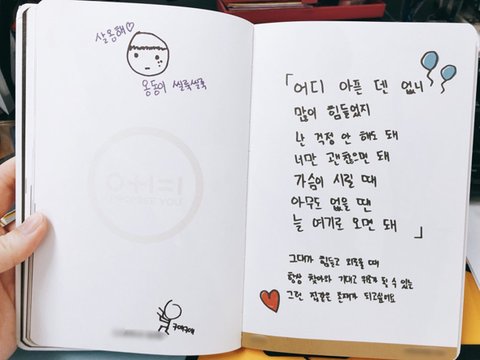 살옹해♡
옹동이 씰룩쌜룩
구애구애
「어디 아픈 덴 없니
많이 힘들었지
난 걱정 안 해도 돼
너만 괜찮으면 돼
가슴이 시릴 때
아무도 없을 땐
늘 여기로 오면 돼」
그대가 힘들고 외로울 때
항상 찾아와 기대고 위로가 될 수 있는
그런 집같은 존재가 되고싶어요